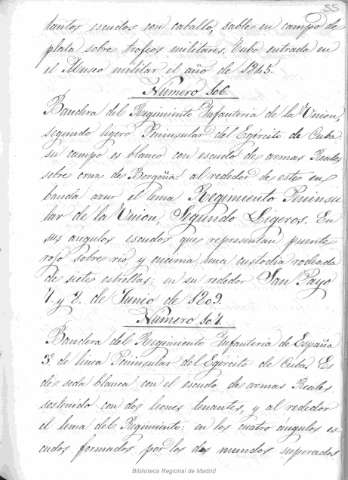 55
tantos escudos con caballo, sable en campo de
plata sobre trofeos militares. Tubo entrada en
el Museo militar el año de 1845.
Numero 506.
Bandera del Regimiento Infanteria de la Union,
segundo ligero Peninsular del Egercito de Cuba
su campo es blanco con escudo de armas Reales
sobre cruz de Borgoña: al rededor de estos en
banda azul el lema Regimiento Peninsu
lar de la Union, Segundo Ligeros. En
sus angulos escudos que representan puente
rojo sobre ria y encima una custodia rodeada
de siete estrellas, en su rededor San Payo
7. y 8. de Junio de 1809.
Numero 507.
Bandera del Regimiento Infanteria de España
5º de linea Peninsular del Egercito de Cuba. Es
de seda blanca con el escudo de armas Reales
sostenido con dos leones tenantes, y al rededor
el lema del Regimiento: en los cuatro angulos es
cudos formados por los dos mundos superados
Biblioteca Regional de Madrid